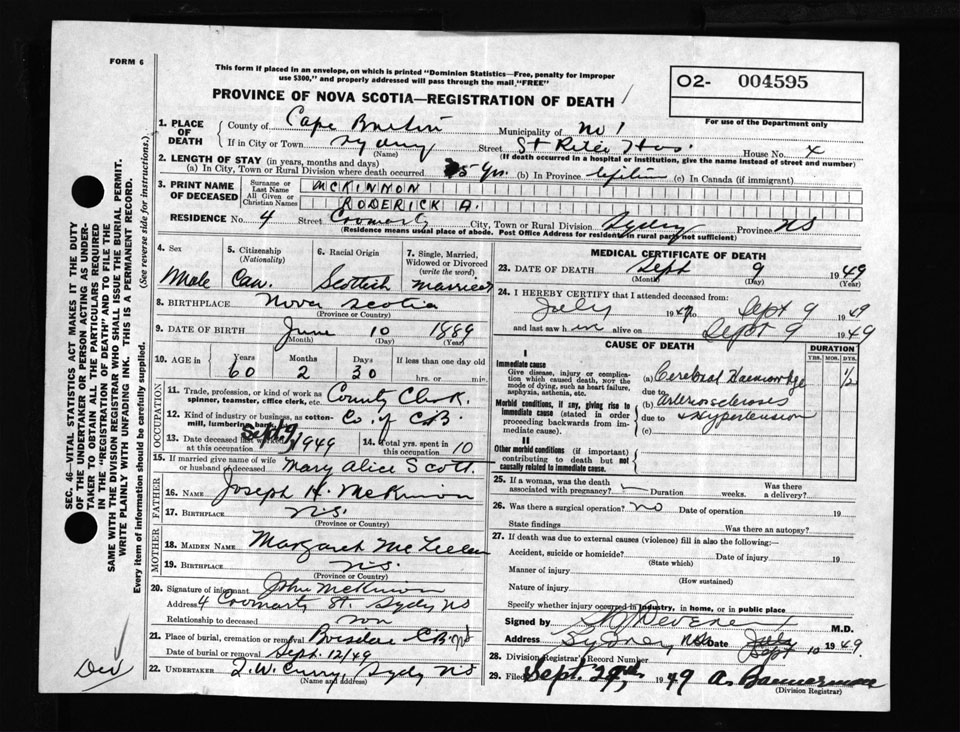 FORM 6
This form if placed in an envelope, on which is printed "Dominion Statistics—Free, penalty for improper
use $300," and properly addressed will pass through the mail "FREE"
O2- 004595
For use of the Department only
PROVINCE OF NOVA SCOTIA—REGISTRATION OF DEATH
1. PLACE OF DEATH County of Cape Breton Municipality of No 1
If in City or Town Sydney Street St Rita Hos. House No. X
(Name) (If death occurred in a hospital or institution, give the name instead of street and number)
2. LENGTH OF STAY (in years, months and days)
(a) In City, Town or Rural Division where death occurred 25 yrs. (b) In Province lifetime (c) In Canada (if immigrant)
3. PRINT NAME OF DECEASED Surname or Last Name MCKINNON
All Given or Christian Names RODERICK A.
RESIDENCE No. 4 Street Cromarty City, Town or Rural Division Sydney Province NS
(Residence means usual place of abode. Post Office Address for residents in rural parts not sufficient)
4. Sex 5. Citizenship (Nationality) 6. Racial Origin 7. Single, Married, Widowed or Divorced (write the word)
Male Can. Scottish Married
8. BIRTHPLACE Nova Scotia
(Province or Country)
9. DATE OF BIRTH June 10 1889
(Month) (Day) (Year)
10. AGE in Years Months Days If less than one day old
60 2 30 hrs. or min.
OCCUPATION
11. Trade, profession, or kind of work as spinner, teamster, office clerk, etc. County Clerk.
12. Kind of industry or business, as cotton-mill, lumbering, bank, Co. of C.B.
13. Date deceased last worked at this occupation Sept 9, 1949 14. Total yrs. spent in this occupation 10
15. If married give name of wife or husband of deceased Mary Alice Scott.
FATHER
16. NAME Joseph H. McKinnon
17. BIRTHPLACE N.S.
(Province or Country)
MOTHER
18. MAIDEN NAME Margaret McLellan
19. BIRTHPLACE N.S.
(Province or Country)
20. Signature of informant John McKinnon
Address 4 Cromarty St. Sydney NS
Relationship to deceased son
21. Place of burial, cremation or removal Boisdale C.B. NS
Date of burial or removal Sept. 12/49
22. UNDERTAKER T.W. Curry, Sydney N.S
(Name and address)
MEDICAL CERTIFICATE OF DEATH
23. DATE OF DEATH Sept 9 1949
(Month) (Day)
24. I HEREBY CERTIFY that I attended deceased from:
July 1947 to Sept 9 1949
and last saw him alive on Sept 9 1949
CAUSE OF DEATH DURATION
YRS. MOS. DYS.
I
Immediate cause
Give disease, injury or complication which caused death, NOT the mode of dying, such as heart failure, asphyxia, asthenia, etc.
(a) Cerebral Haemorrhage 1/2
due to
Morbid conditions, if any, giving rise to immediate cause (stated in order proceeding backwards from immediate cause).
(b) Arteriosclerosis
due to & Hypertension
(c)
II
Other morbid conditions (if important) contributing to death but not causally related to immediate cause.
25. If a woman, was the death associated with pregnancy? Duration weeks. Was there a delivery?
26. Was there a surgical operation? no Date of operation 19
State findings Was there an autopsy?
27. If death was due to external causes (violence) fill in also the following:
Accident, suicide or homicide? Date of injury 19
(State which)
Manner of injury
(How sustained)
Nature of injury
Specify whether injury occurred in industry, in home, or in public place
Signed by Devene M.D.
Address Sydney, NS Date July Sept 10 1949.
28. Division Registrar's Record Number
29. Filed Sept. 1949 A. Bannerman
(Division Registrar)
SEC. 46—VITAL STATISTICS ACT MAKES IT THE DUTY
OF THE UNDERTAKER OR PERSON ACTING AS UNDER-
TAKER TO OBTAIN ALL THE PARTICULARS REQUIRED
IN THE "REGISTRATION OF DEATH" AND TO FILE THE
SAME WITH THE DIVISION REGISTRAR WHO SHALL ISSUE THE BURIAL PERMIT.
WRITE PLAINLY WITH UNFADING INK. THIS IS A PERMANENT RECORD.
Every item of information should be carefully supplied. (See reverse side for instructions.)